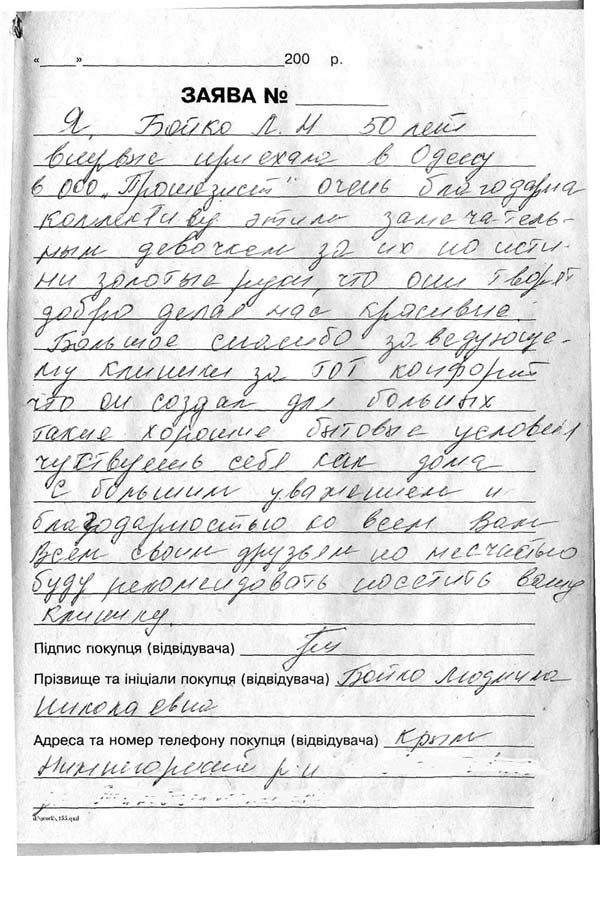 «____»____________________200 р.
ЗАЯВА № ________
Я, Бойко Л. Н 50 лет
впервые приехала в Одессу
в ООО „Протезист" очень благодарна
коллективу этим замечатель-
ным девочкам за их по исти-
ни золотые руки, что они творят
добро делая нас красивые.
Большое спасибо заведующе-
му клиники за тот комфорт
что он создал для больных
такие хорошие бытовые условия
чуствуешь себя как дома
С большим уважением и
благодарностью ко всем Вам
Всем своим друзьям по несчастью
буду рекомендовать посетить вашу
клинику.
Підпис покупця (відвідувача)
Прізвище та ініціали покупця (відвідувача) Бойко Людмила
Николаевна
Адреса та номер телефону покупця (відвідувача) Крым
Нижнегорский р-н